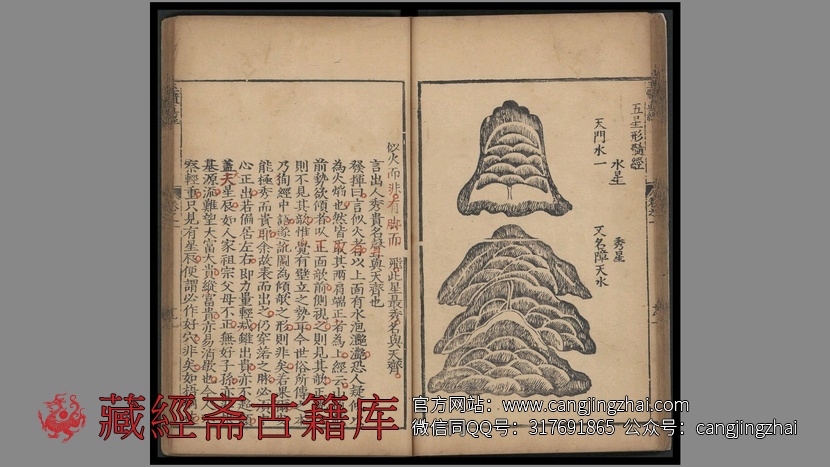 五星形髓經
水星
天門水一
秀星
又名障天水
似火而非有脚而飛此星最秀名與天齊
言出人秀貴名聲與天齊也
發揮曰言似火者以上面有水泡灧灧恐人疑似
為火焰也然皆取其兩肩端正者為上經云山
前勢欲傾者以正面欹前側視之則見其欹正
則不見其欹惟覺有壁立之勢耳今世俗所傳
乃狗經中謠遂訛圖為傾欹之形則非矣若果
能極秀而貴耶余故表而出之仍穿若之脉必
心正出若偏居左右即力量輕減雖出貴亦不
蓋夫星辰如人家祖宗父母不正無好子孫
基源流難望大富大貴縱富貴亦易消歇也
察輕重只見有星辰便謂必作好穴非矣如
藏經斋古籍库
官方网站：www.cangjingzhai.com
微信同QQ号：317691865 公众号：cangjingzhai